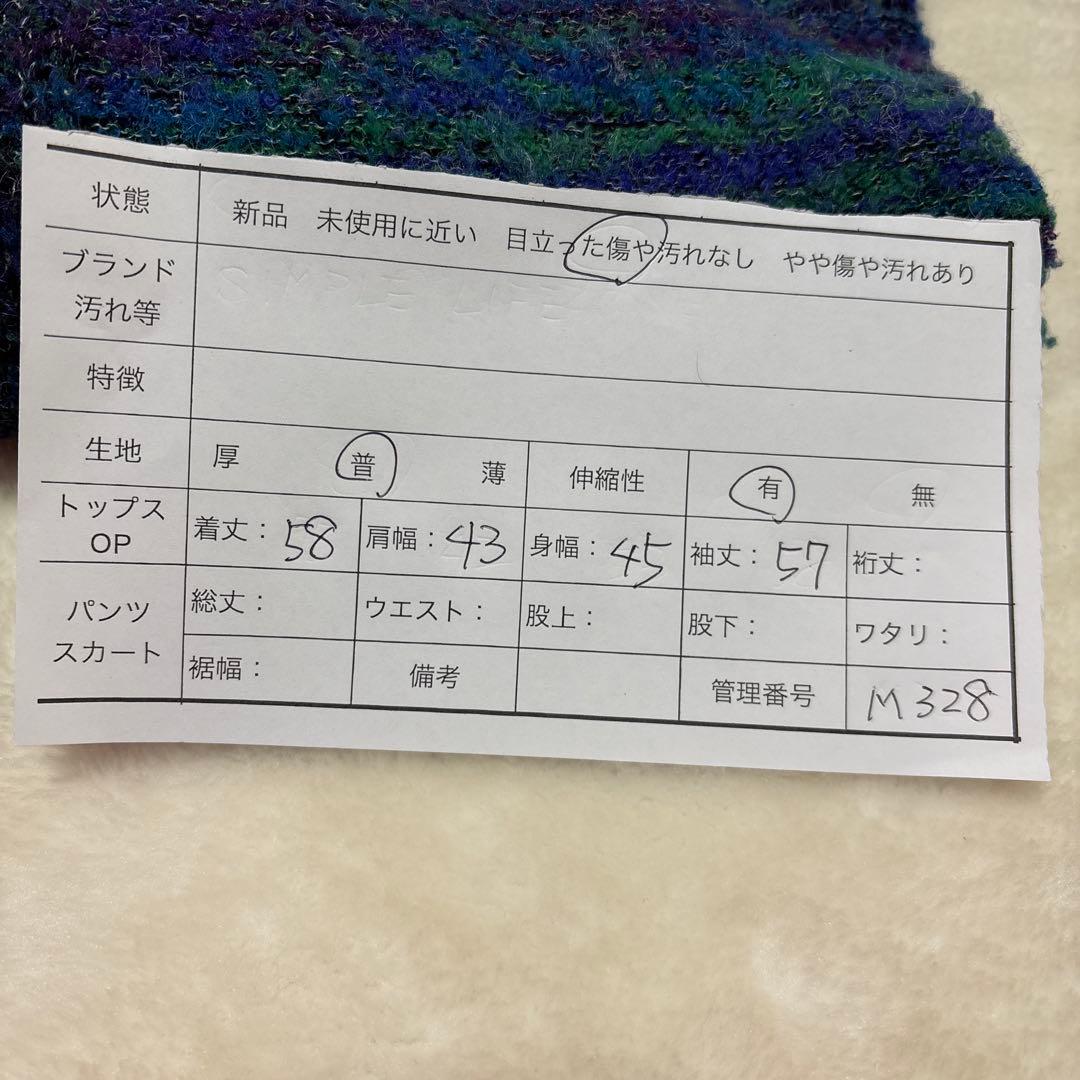 状態 新品 未使用に近い 目立った傷や汚れなし やや傷や汚れあり
ブランド
汚れ等 SIMPLE LIFE
特徴
生地 厚 普 薄 伸縮性 有 無
トップス
OP 着丈：58 肩幅：43 身幅：45 袖丈：57 裄丈：
パンツ
スカート 総丈： ウエスト： 股上： 股下： ワタリ：
裾幅： 備考 管理番号 M328